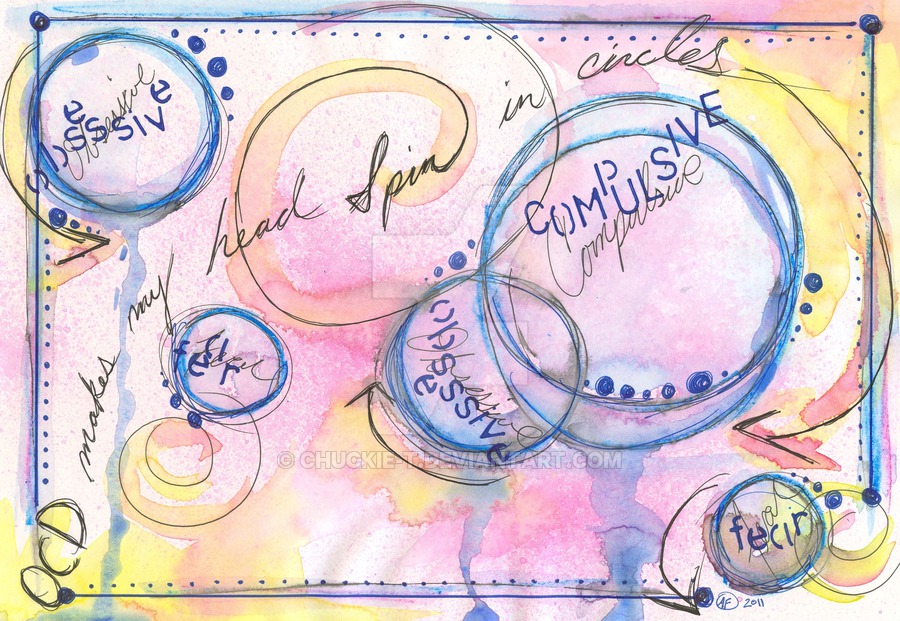 OCD makes my head Spin in circles
obsessive
Obsessive
COMPULSIVE
Compulsive
obsessive
Obsessive
fear
fear
fear
fear
© CHUCKIE-T.DEVIANTART.COM
AF 2011